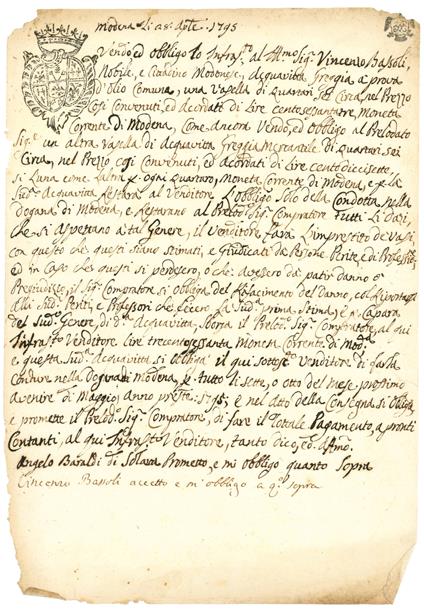 Modena li 28: Aprle. 1795
Vendo, ed obbligo Io Infrastto al Illmo Sigr Vincenzo Bassoli
Nobile, e Cittadino Modonese, Acquavitta Greggia a prova
d'Olio Comune, una Vasella di Quartari Sei Circa, nel Prezzo
Cosi Convenuti, ed Accordati di Lire Centosessantatre, Moneta
Corrente di Modena, Come ancora Vendo, ed obbligo al Prelodato
Sigre un altra Vasella di Acquavitta Greggia Mercantile di Quartari sei
Circa, nel Prezzo Cosi Convenuti, ed Accordati di Lire Centodiciisette,
si l'una Come l'altra p ogni Quartaro, Moneta Corrente di Modena, e p la
Sudta Acquavitta Restara al Venditore l'obbligo Solo della Condotta nella
Dogana di Modena, e Restarano al Prelodto Sigr Compratore Tutti Li Dazi,
che si Aspettano à tal Genere, il Venditore farà l'imprestito de Vasi,
con questo che questi siano Stimati, e Giudicati da Persone Perite, e da Professori
ed in Caso che questi si perdesero, o che avessero da patir danno o
Preiudizio, il Sigr Compratore si obbliga del Rifacimento del Danno, col
alli Sudti Periti, e Professori che fecero la Sudta prima Stima, e p Capara
del Sudto Genere, di dta Acquavitta, Sborsa il Prelodto Sigr Compratore, al qui
Infrastto Venditore Lire trecentosessanta Moneta Corrente di Moda
e questa Sudta Acquavitta si obbliga il qui sottosto Venditore di farla
Condure nella Dogana di Modena, p tutto li sette, o otto del Mese prossimo
avenire di Maggio, Anno preste 1795; e nel Atto della Consegna si Obbliga,
e promette il Prelodto Sigr Compratore, di fare il Totale Pagamento, a pronti
Contanti, al qui Infrastto Venditore, tanto dico, ed Affmo.
Angelo Baraldi di Solara Prometto, e mi obbligo quanto Sopra
Vincenzo Bassoli accetto e m'obbligo a qto sopra